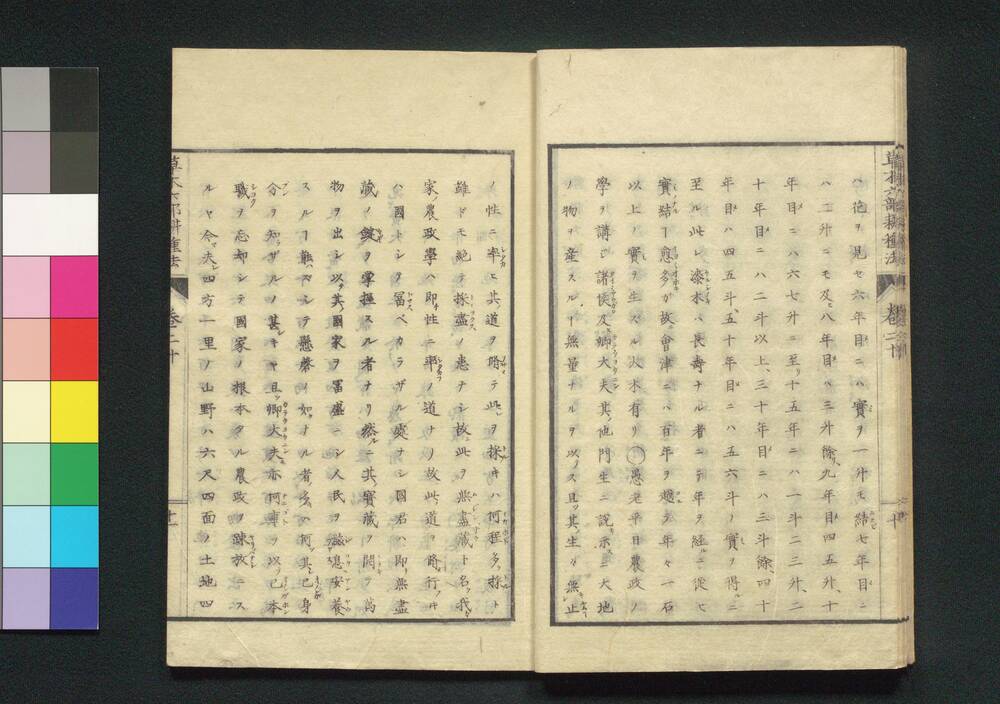 ハ花ヲ見セ六年目ニハ實ヲ一升モ結七年目ニ
ハ二升ニモ及ヒ八年目ハ三升餘九年目四五升、十
年目ニハ六七升ニ至リ十五年ニハ一斗二三升、二
十年目ニハ二斗以上、三十年目ニハ三斗餘、四十
年目ハ四五斗、五十年目ニハ五六斗ノ實ヲ得ルニ
至ル此レ漆木ハ長壽ナル者ニテ年ヲ經ルニ從ヒ
實結ヿ愈多カ故ニ會津ニハ百年ヲ過テ年々一石
以上ノ實ヲ生スル大木有リ○愚老平日農政ノ
學ヲ講シ諸侯及卿大夫其他門生ニ說示ニ大地
ノ物ヲ産スルヿ無量ナルヲ以ス且其生々無止
草木六部耕種法 卷二十
ノ性ニ率ヒ其道ヲ脩テ此ヲ採ルハ何程多ク採ト
雖ドモ絕テ採盡ノ患ナシ故ニ此ヲ無盡藏ト名ク我
家ノ農政學ハ即性ニ率ノ道ナリ故ニ此道ヲ脩行ルハ
ハ國トシテ冨ベカラザル處ナシ國君ハ即無盡
藏ノ鍵ヲ掌握スル者ナリ然ルニ其寶藏ヲ開テ萬
物ヲ出シ以其國家ヲ冨盛ニシ人民ヲ滋息安養
スルヿ能ハズシテ懸磬ノ如ナル者多ハ何ソ其己身
分ヲ知ザルノ甚キヤ且卿大夫亦何ヲ以カ己本
職ヲ忘却シテ國家ノ根本タル農政ヲ疎放ニス
ルヤ今夫四方一里ノ山野ハ六尺四面ノ土地四
草木六部耕種法 卷二十